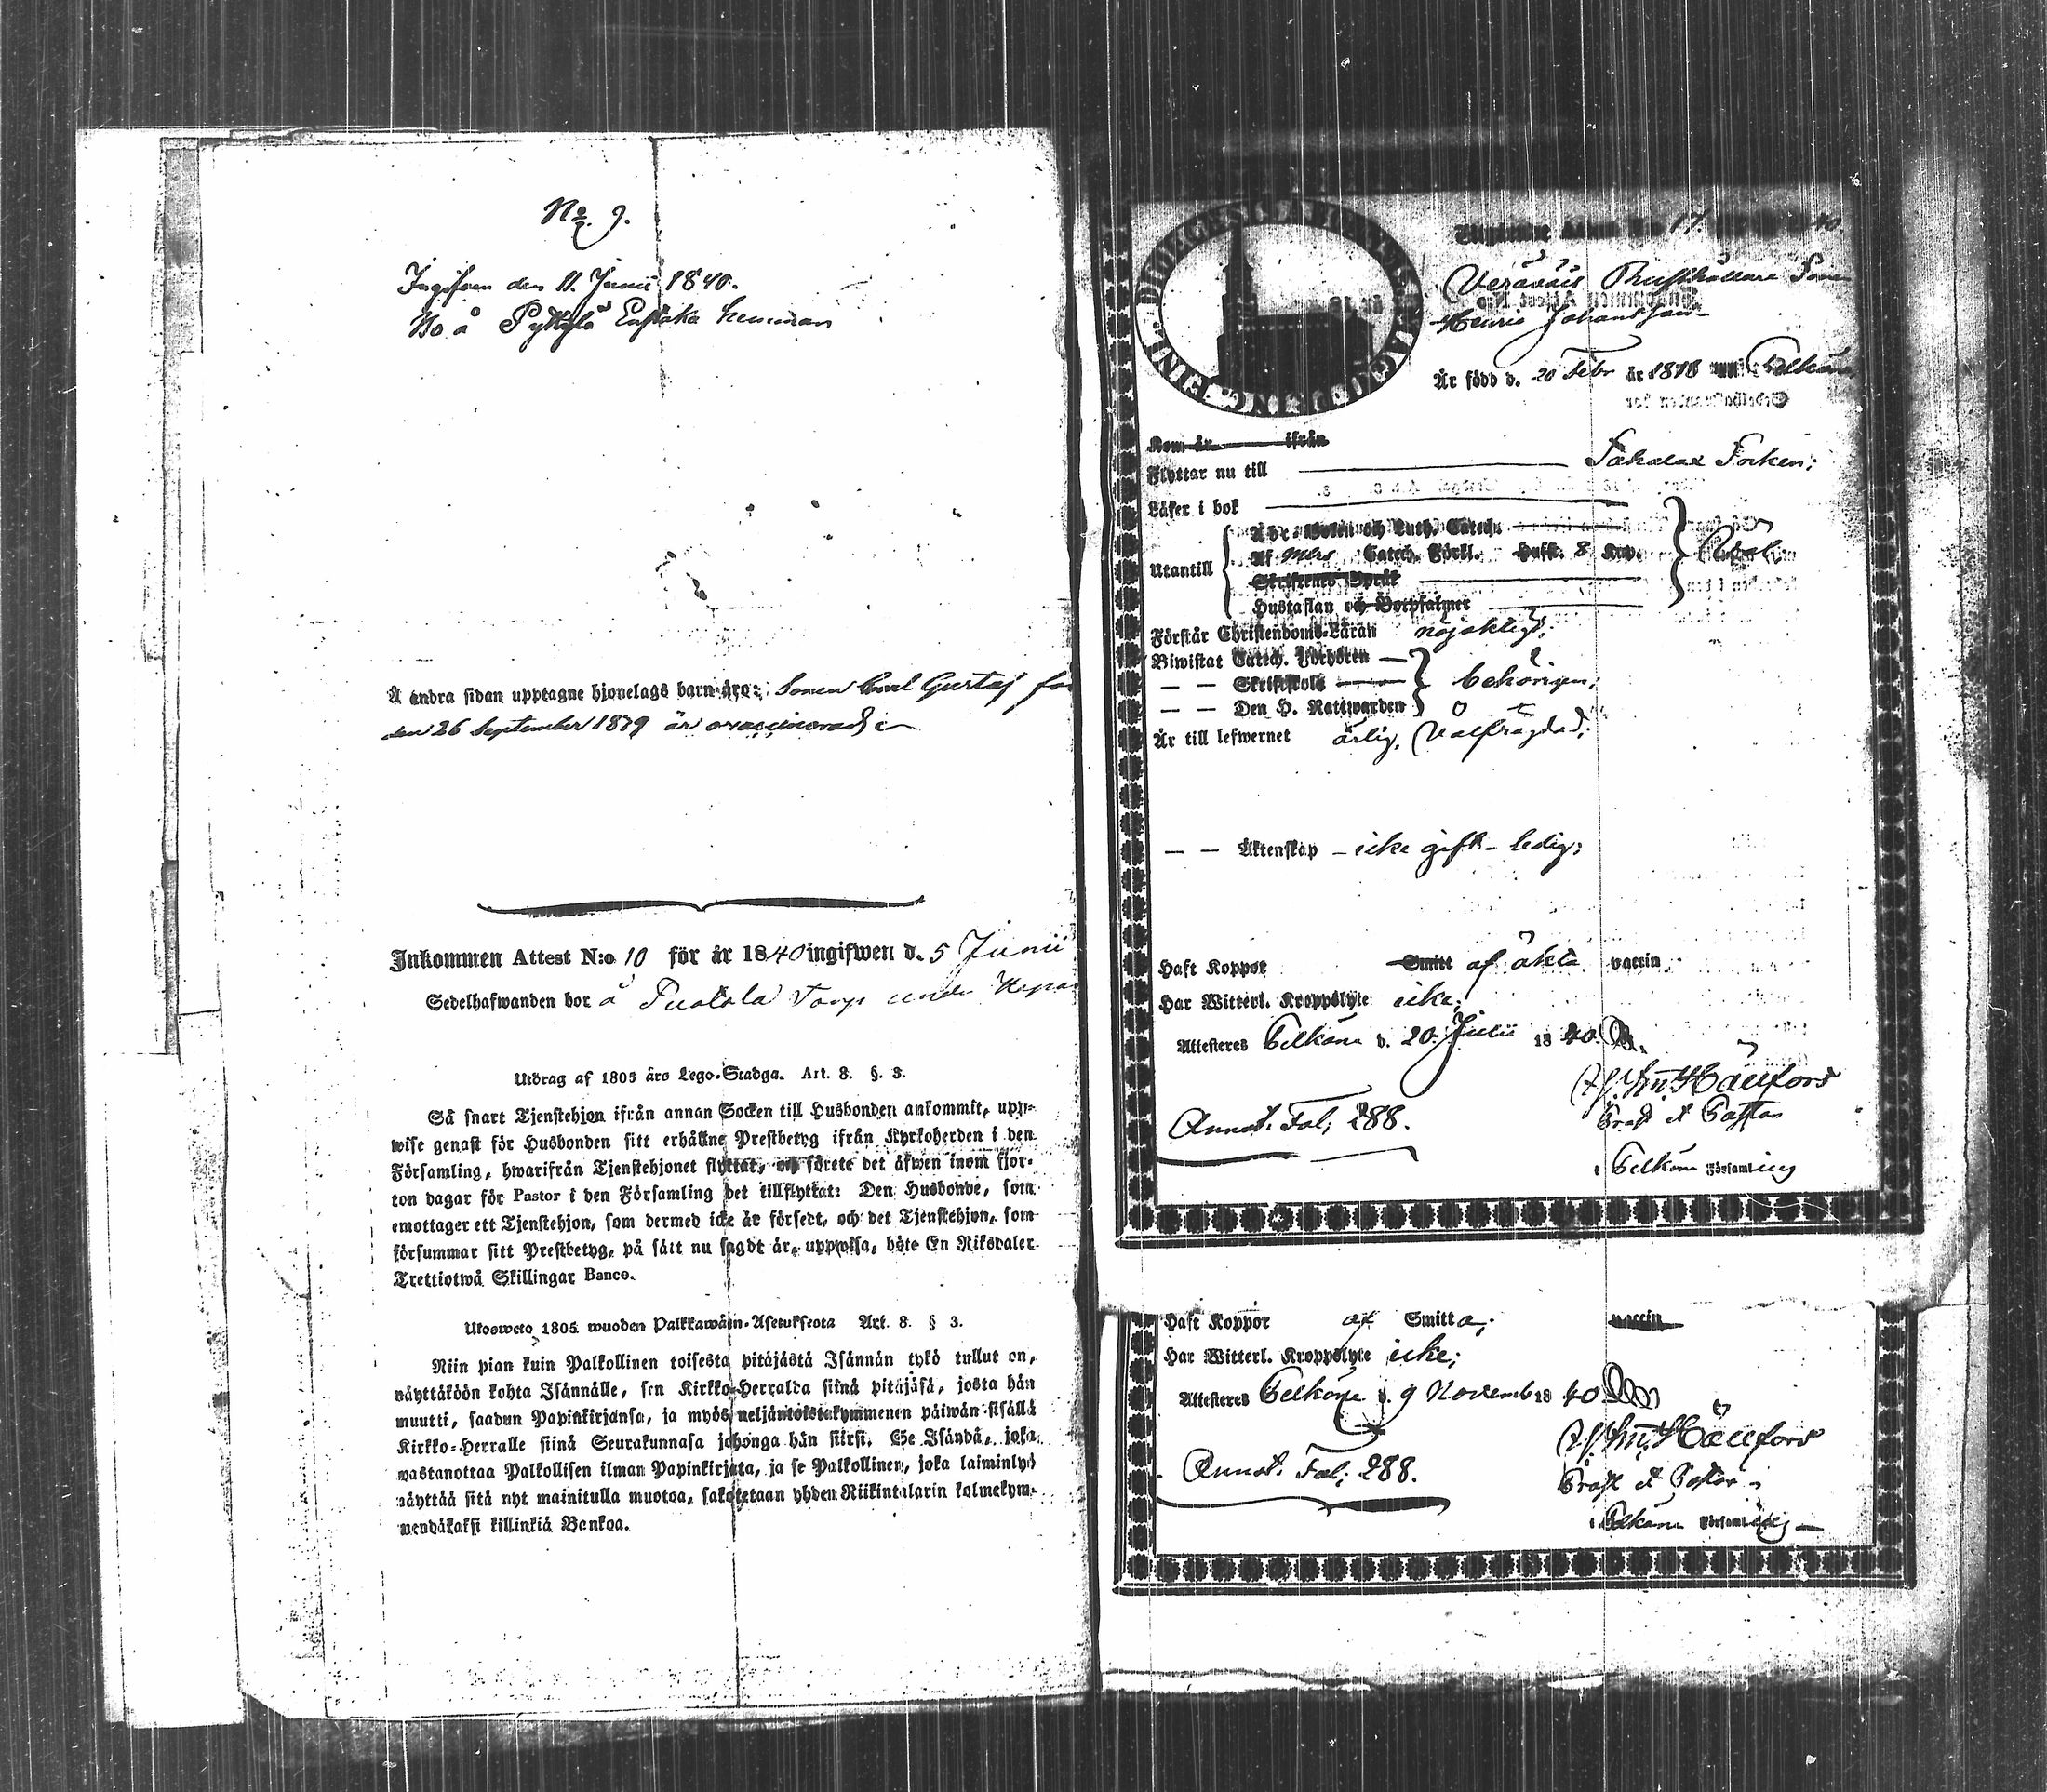 No 9.
Ingifven den 11. Junii 1840.
Bo å Pyttylä Enstaka hemman
Å andra sidan upptagne hjonelags barn äro: Sonen Carl Gustaf
den 26 September 1839 är ovaccinerad
Inkommen Attest N:o 10 för år 1840 ingifwen d. 5 Junii
Sedelhafwanden bor å Torp under
Utdrag af 1805 års Lego-Stadga. Art. 8. §. 3.
Så snart Tjenstehjon ifrån annan Socken till Husbonden ankommit, upp-
wise genast för Husbonden sitt erhållne Prestbetyg ifrån Kyrkoherden i den
Församling, hwarifrån Tjenstehjonet flyttat, och förete det äfwen inom fjor-
ton dagar för Pastor i den Församling det tillflyttat: Den Husbonde, som
emottager ett Tjenstehjon, som dermed icke är försedt, och det Tjenstehjon, som
försummar sitt Prestbetyg, på sätt nu sagdt är, uppwisa, böte En Riksdaler
Trettiotwå Skillingar Banco.
Ulosweto 1805 wuoden Palkkawäen-Asetuksesta Art. 8. § 3.
Niin pian kuin Palkollinen toisesta pitäjästä Isännän tykö tullut on,
näyttäköön kohta Isännälle, sen Kirkko-Herralda siinä pitäjäsä, josta hän
muutti, saadun Papinkirjansa, ja myös neljäntoistakymmenen päiwän sisällä
Kirkko-Herralle siinä Seurakunnasa johonga hän siirsi. Se Isändä, joka
wastanottaa Palkollisen ilman Papinkirjata, ja se Palkollinen, joka laiminlyö
näyttää sitä nyt mainitulla muotoa, sakotetaan yhden Riikintalarin kolmekym-
mendäkaksi killinkiä Bankoa.
17. 40.
Rusthållare Son
Henric Johansson
Är född d. 20 Febr år 1818 uti Pelkäne
Kom år ifrån
Flyttar nu till Sahalax Socken;
Läser i bok
Utantill
A b c Boken och Luth. Catech.
Af Mkrs Catech. Förkl. Hufst. 8 Kap.
Skriftenes Språk
Hustaflan och Botpsalmer
Förstår Christendoms-Läran nöjaktigt;
Biwistat Catech. Förhören
— — Skriftskola behörigen;
— — Den H. Nattwarden
Är till lefwernet ärlig, välfrägdad;
— — Äktenskap – icke gift – ledig;
Haft Koppor Smitt af äkta vaccin;
Har Witterl. Kroppslyte icke;
Attesteres Pelkäne d. 20. Julii 1840.
Hällfors
Annot. Fol; 288.
Prost et Pastor
i Pelkäne Församling
Haft Koppor af Smitta; vaccin
Har Witterl. Kroppslyte icke;
Attesteres Pelkäne d. 9 Novemb 1840
Hällfors
Annot. Fol; 288.
Prost et Pastor
i Pelkäne Församling